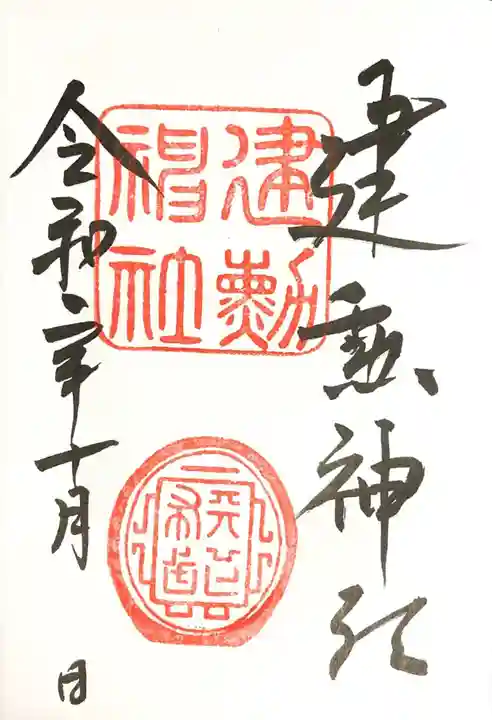 建勲神社
建勲
神社
令和二年十月 日